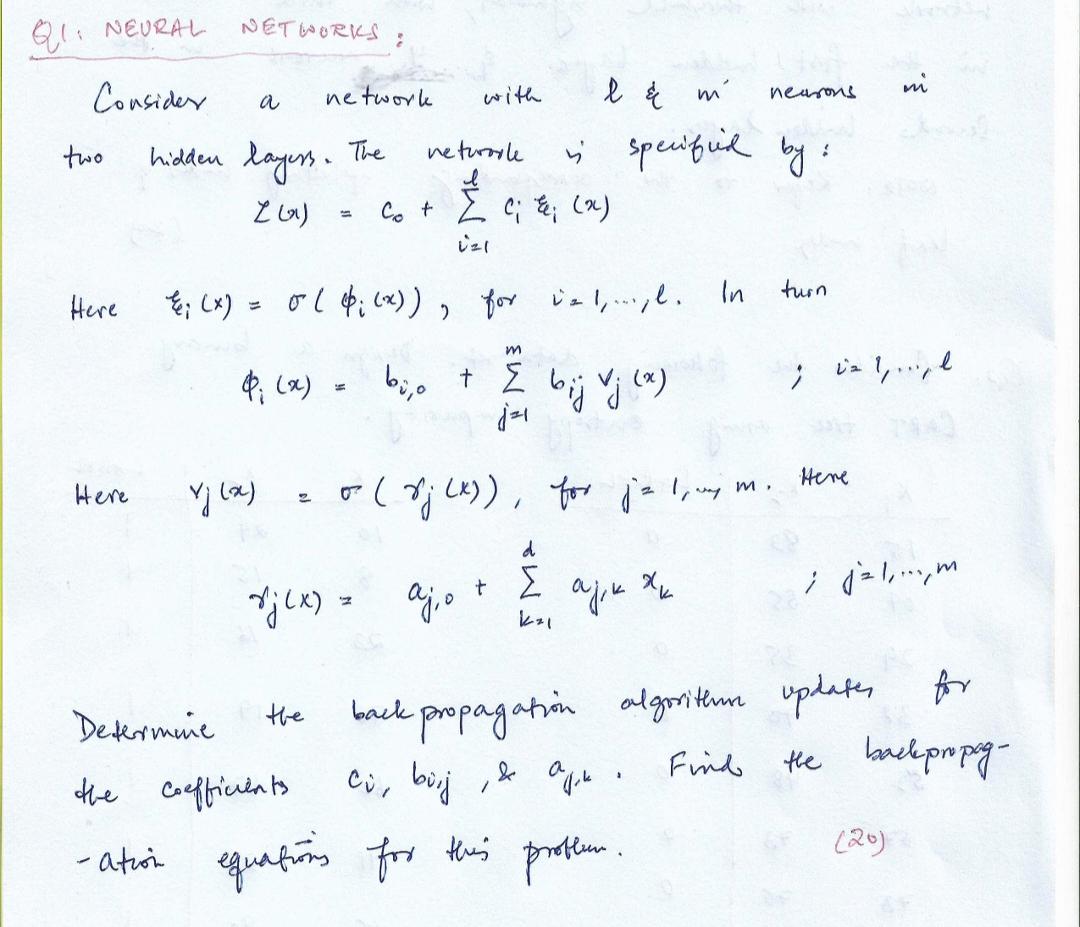 Q1: NEURAL NETWORKS:
Consider a network with l & m neurons in
two hidden layers. The network is specified by:
Z(x) = c₀ + Σ_{i=1}^{l} c_i ξ_i (x)
Here ξ_i (x) = σ( ϕ_i (x)), for i=1,...,l. In turn
ϕ_i (x) = b_{i,0} + Σ_{j=1}^{m} b_{ij} v_j (x) ; i=1,...,l
Here v_j (x) = σ( γ_j (x)), for j=1,..., m. Here
γ_j(x) = a_{j,0} + Σ_{k=1}^{d} a_{j,k} x_k ; j=1,...,m
Determine the backpropagation algorithm updates for
the coefficients c_i, b_{i,j}, & a_{j,k}. Find the backpropag-
-ation equations for this problem. (20)